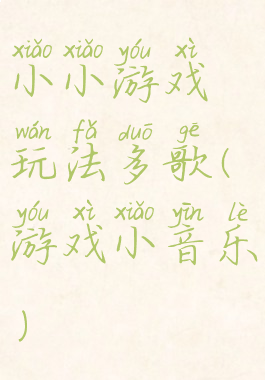 xiǎo xiǎo yóu xì
小小游戏
wán fǎ duō gē
玩法多歌(
yóu xì xiǎo yīn lè
游戏小音乐
)